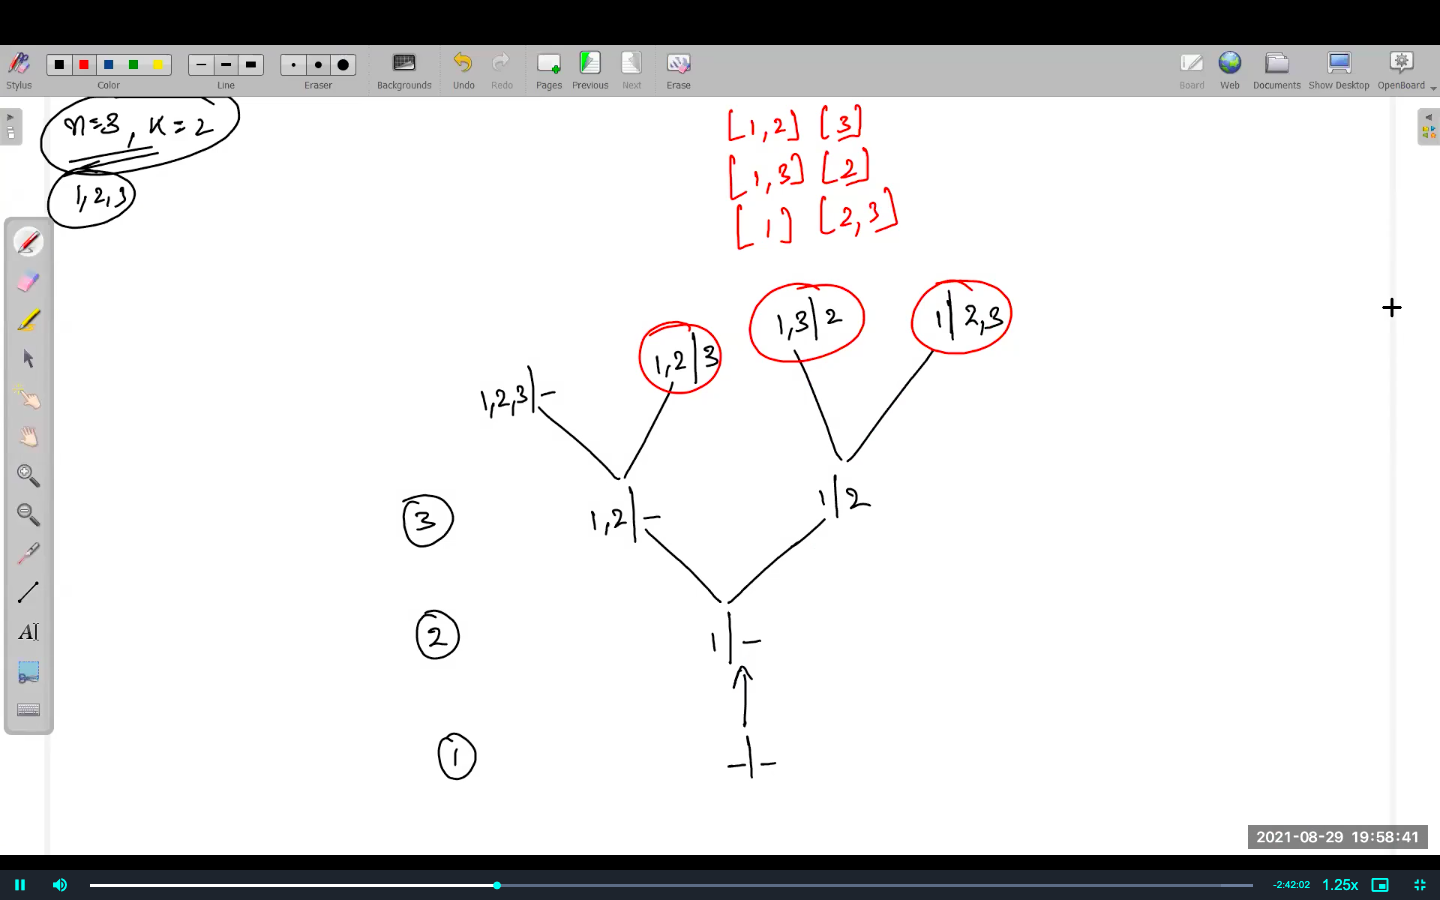 Stylus Color Line Eraser Backgrounds Undo Redo Pages Previous Next Erase Board Web Documents Show Desktop OpenBoard
n=3, K=2
1,2,3
[1,2] [3]
[1,3] [2]
[1] [2,3]
1,2,3|- 1,2|3 1,3|2 1|2,3
3 1,2|- 1|2
2 1|-
1 -|-
A
2021-08-29 19:58:41
-2:42:02 1.25x